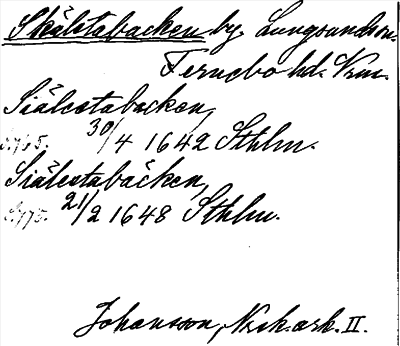 Skälstabacken by, Lungsundssn.
Fernebo hd. Vrm.
Siälestabacken,
30/4 1642 Sthlm.
Siälestabäcken,
21/2 1648 Sthlm.
Johansson, Nrk. ark. II.